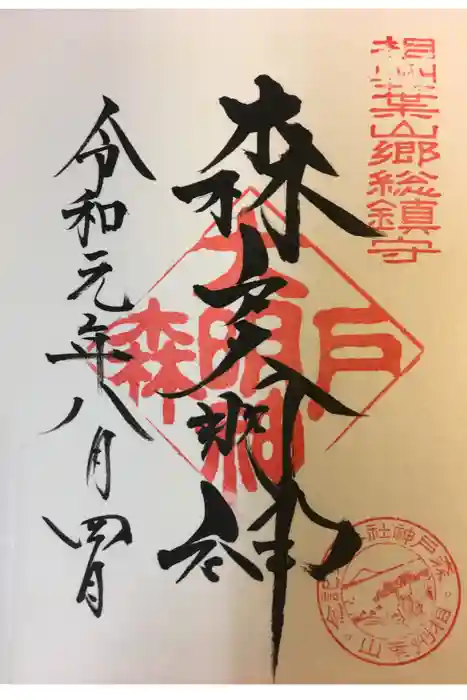 相州葉山郷総鎮守
森戸大明神
森戸大明神
令和元年八月四日
森戸神社
相州葉山